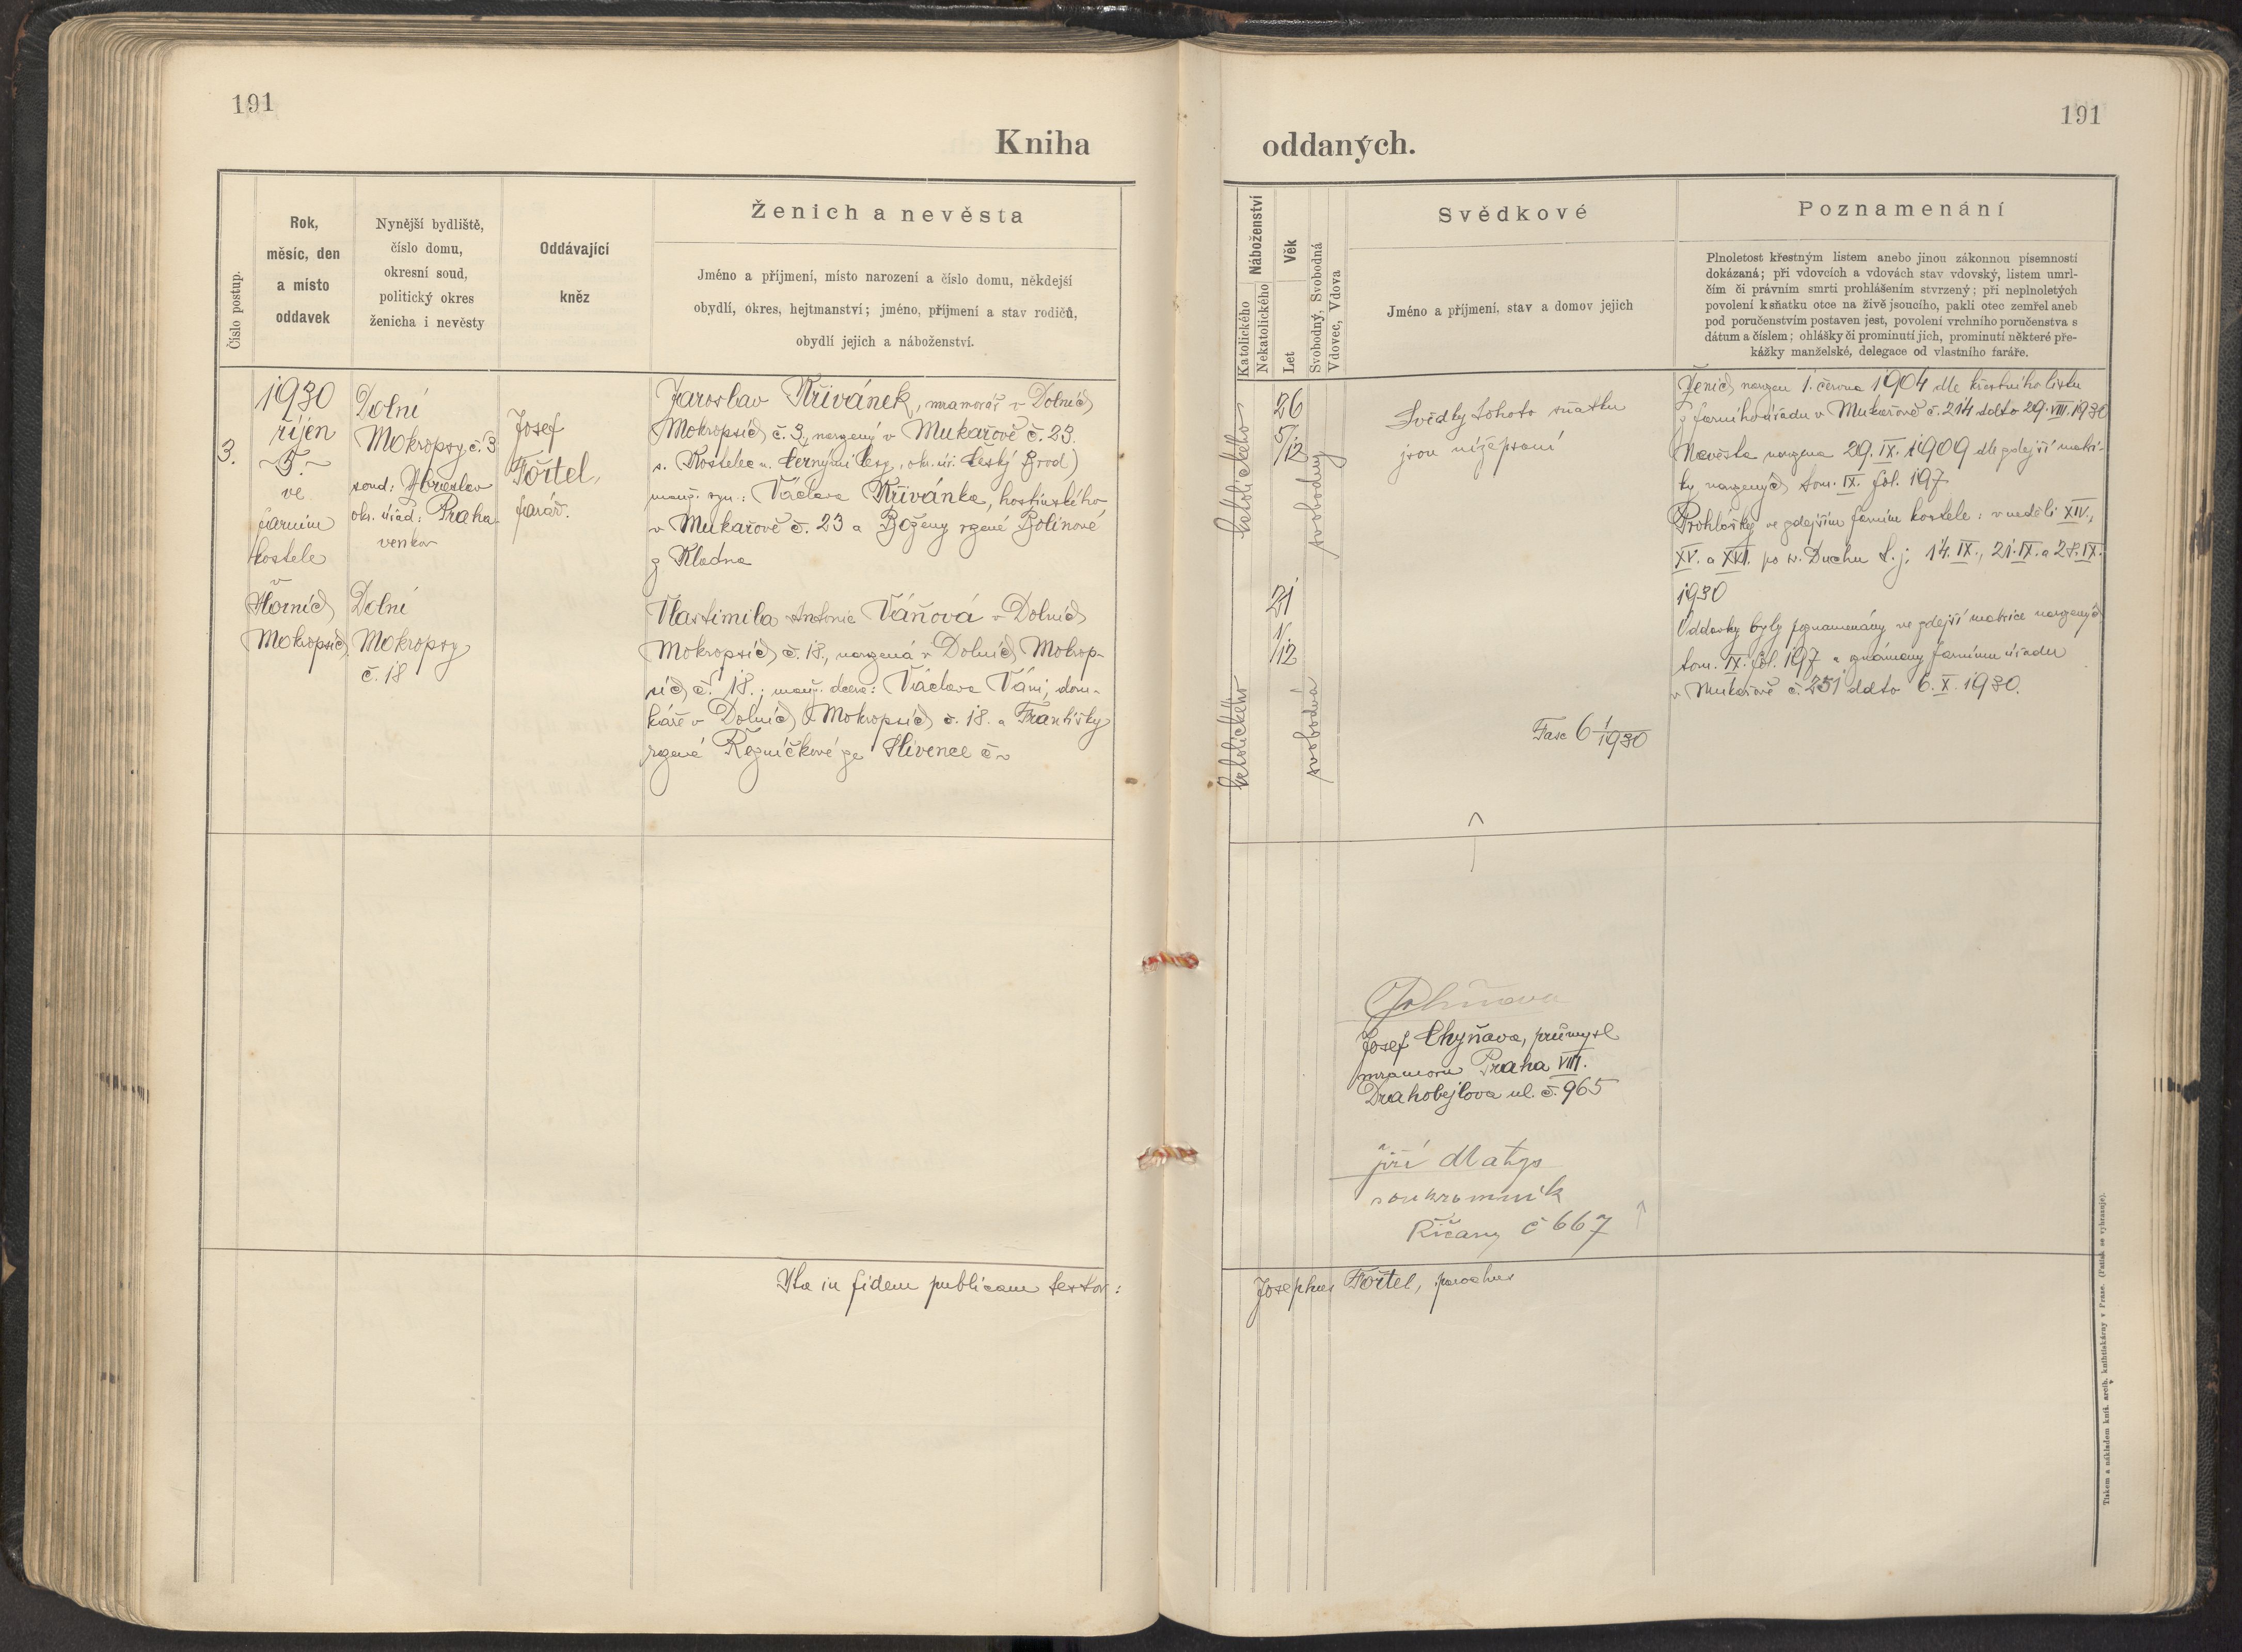 191
Kniha
Číslo postup.
Rok,
měsíc, den
a místo
oddavek
Nynější bydliště,
číslo domu,
okresní soud,
politický okres
ženicha i nevěsty
Oddávající
kněz
Ženich a nevěsta
Jméno a příjmení, místo narození a číslo domu, někdejší
obydlí, okres, hejtmanství; jméno, příjmení a stav rodičů,
obydlí jejich a náboženství.
3.
1930
říjen
5.
ve
farním
kostele
v
Horních
Mokropsích
Dolní
Mokropsy č. 3
soud: Zbraslav
okr. úřad: Praha
venkov
Dolní
Mokropsy
č. 18
Josef
Fořtel,
farář.
Jaroslav Křivánek, mramorář v Dolních
Mokropsích č. 3, narozený v Mukařově č. 23.
s. Kostelec n. Černými lesy, okr. úř. Český Brod)
manž. syn: Václava Křivánka, hostinského
v Mukařově č. 23 a Boženy rozené Bolinové
z Kladna
Vlastimila Antonie Váňová v Dolních
Mokropsích č. 18., narozená v Dolních Mokrop-
sích č. 18.; manž. dcera: Václava Váni, dom-
káře v Dolních Mokropsích č. 18. a Františky
rozené Řezníčkové ze Slivence č.
Ita in fidem publicam testor:
191
oddaných.
Náboženství
Katolického
Nekatolického
Věk
Let
Svobodný, Svobodná
Vdovec, Vdova
Svědkové
Jméno a příjmení, stav a domov jejich
Poznamenání
Plnoletost křestným listem anebo jinou zákonnou písemností
dokázaná; při vdovcích a vdovách stav vdovský, listem umrl-
čím či právním smrti prohlášením stvrzený; při neplnoletých
povolení k sňatku otce na živě jsoucího, pakli otec zemřel aneb
pod poručenstvím postaven jest, povolení vrchního poručenstva s
dátum a číslem; ohlášky či prominutí jich, prominutí některé pře-
kážky manželské, delegace od vlastního faráře.
katolického
26
5/12
svobodný
katolického
21
1/12
svobodná
Svědky tohoto sňatku
jsou nížepsaní
Fasc 6 1/1930
Ženich narozen 1. června 1904 dle křestního listu
z farního úřadu v Mukařově č. 214 ddto 29. VIII. 1930
Nevěsta narozena 29. IX. 1909 dle zdejší matri-
ky narozených tom. IX. fol. 197
Prohlášky ve zdejším farním kostele: v neděli XIV.,
XV. a XVI. po sv. Duchu t. j. 14. IX., 21. IX. a 28. IX.
1930
Oddavky byly poznamenány ve zdejší matrice narozených
tom. IX. fol. 197 a oznámeny farnímu úřadu
v Mukařově č. 251 ddto 6. X. 1930.
Josef Chyňava, průmysl
mramoru Praha VIII.
Drahobejlova ul. č. 965
Jiří Matys
soukromník
Říčany č 667
Josephus Fořtel, parochus
Tiskem a nákladem kníž. arcib. knihtiskárny v Praze. (Patisk se vyhrazuje).